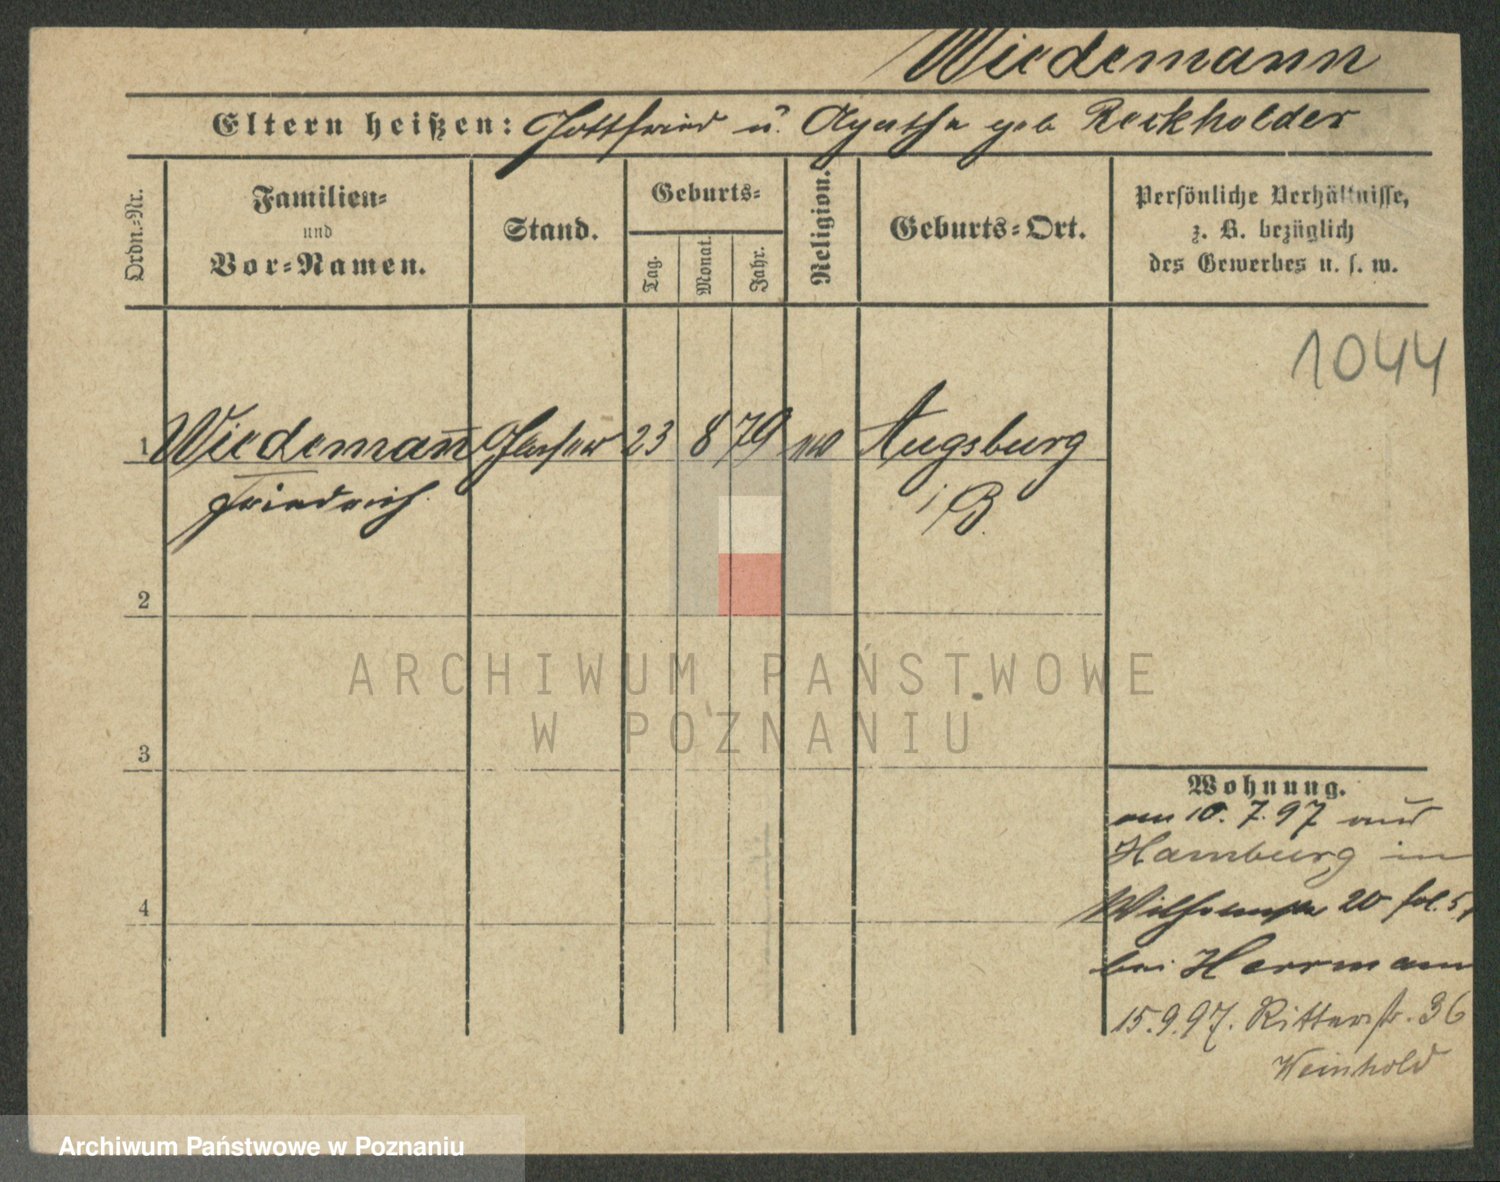 Wiedemann
Eltern heißen: Gottfried u. Agathe geb Reckholder
Ordn.-Nr.
Familien-
und
Vor-Namen.
Stand.
Geburts-
Tag.
Monat.
Jahr.
Religion.
Geburts-Ort.
Persönliche Verhältnisse,
z. B. bezüglich
des Gewerbes u. s. w.
1044
1 Wiedemann̄ 23 8 79 Augsburg
Friedrich i/B.
2
ARCHIWUM PAŃSTWOWE
W POZNANIU
3
Wohnung.
am 10. 7. 97 aus
Hamburg in
4
Wilhelmstr 20
bei Herrmann
15.9.97. Ritterstr. 36
Weinhold
Archiwum Państwowe w Poznaniu